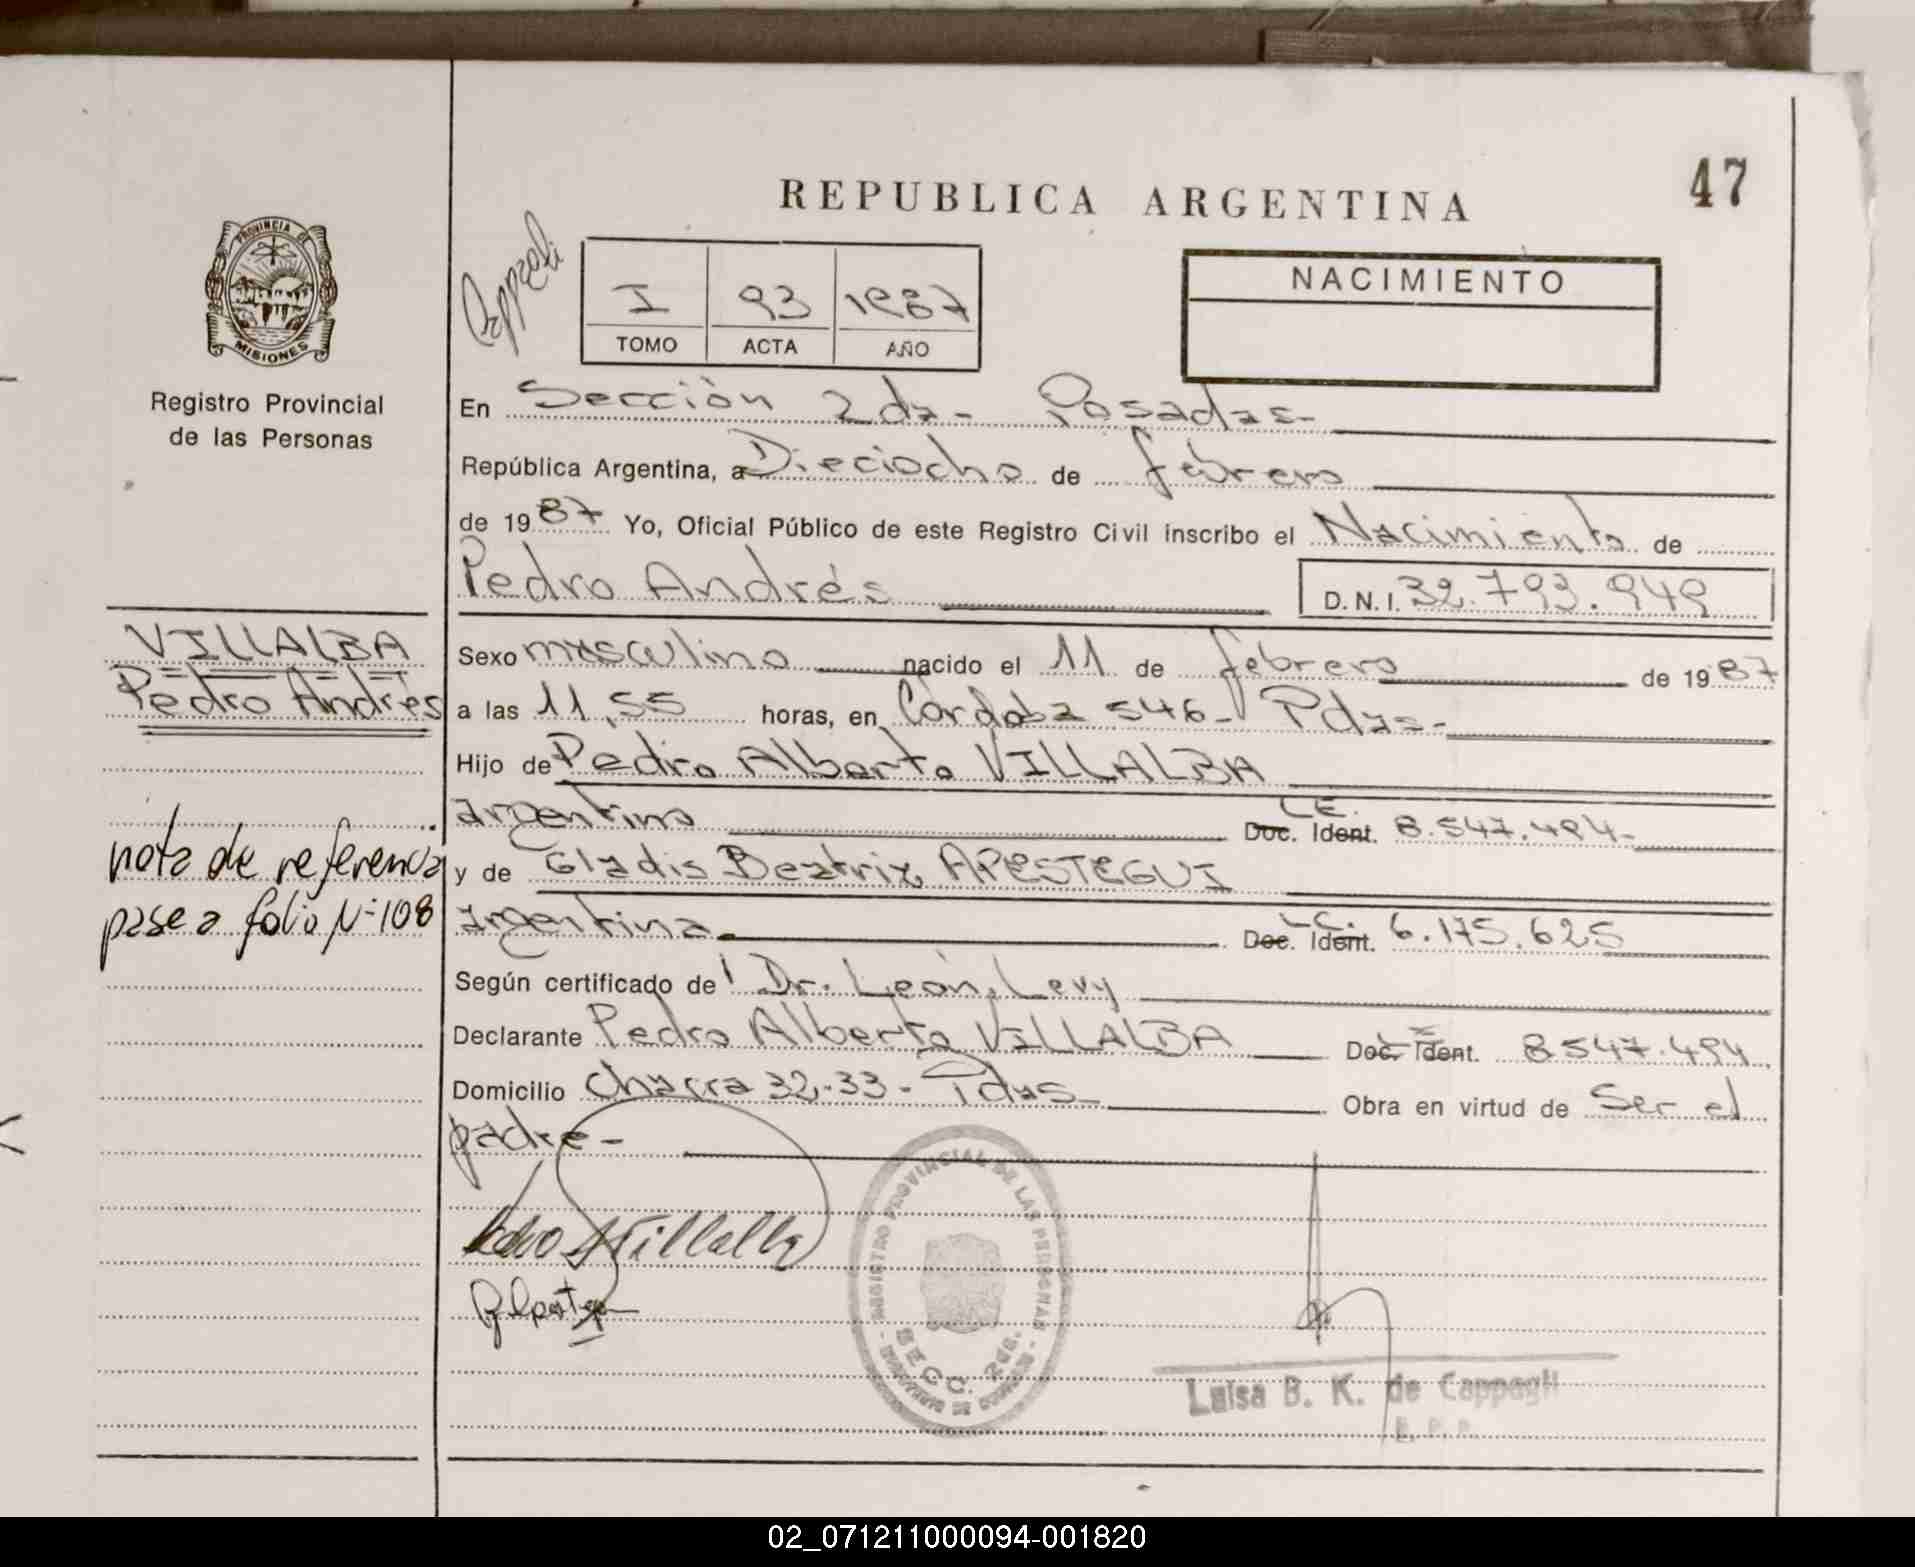 47
REPUBLICA ARGENTINA
PROVINCIA DE
MISIONES
Registro Provincial
de las Personas
I 93 1987
TOMO ACTA AÑO
NACIMIENTO
En Sección 2da- Posadas-
República Argentina, a Dieciocho de febrero
de 1987 Yo, Oficial Público de este Registro Civil inscribo el Nacimiento de
Pedro Andrés D.N.I. 32.793.949
VILLALBA
Pedro Andrés
Sexo masculino nacido el 11 de febrero de 1987
a las 11,55 horas, en Córdoba 546- Pdas-
Hijo de Pedro Alberto VILLALBA
argentino L.E. Doc. Ident. 8.547.494-
nota de referencia
pase a folio Nº 108
y de Gladis Beatriz APESTEGUI
argentina. L.C. Doc. Ident. 6.175.625
Según certificado de Dr. León, Levy
Declarante Pedro Alberto VILLALBA Doc. Ident. 8.547.494
Domicilio Chacra 32-33- Pdas- Obra en virtud de Ser el
padre-
REGISTRO PROVINCIAL DE LAS PERSONAS
SECC. 2da.
Luisa B. K. de Cappagli
02_071211000094-001820